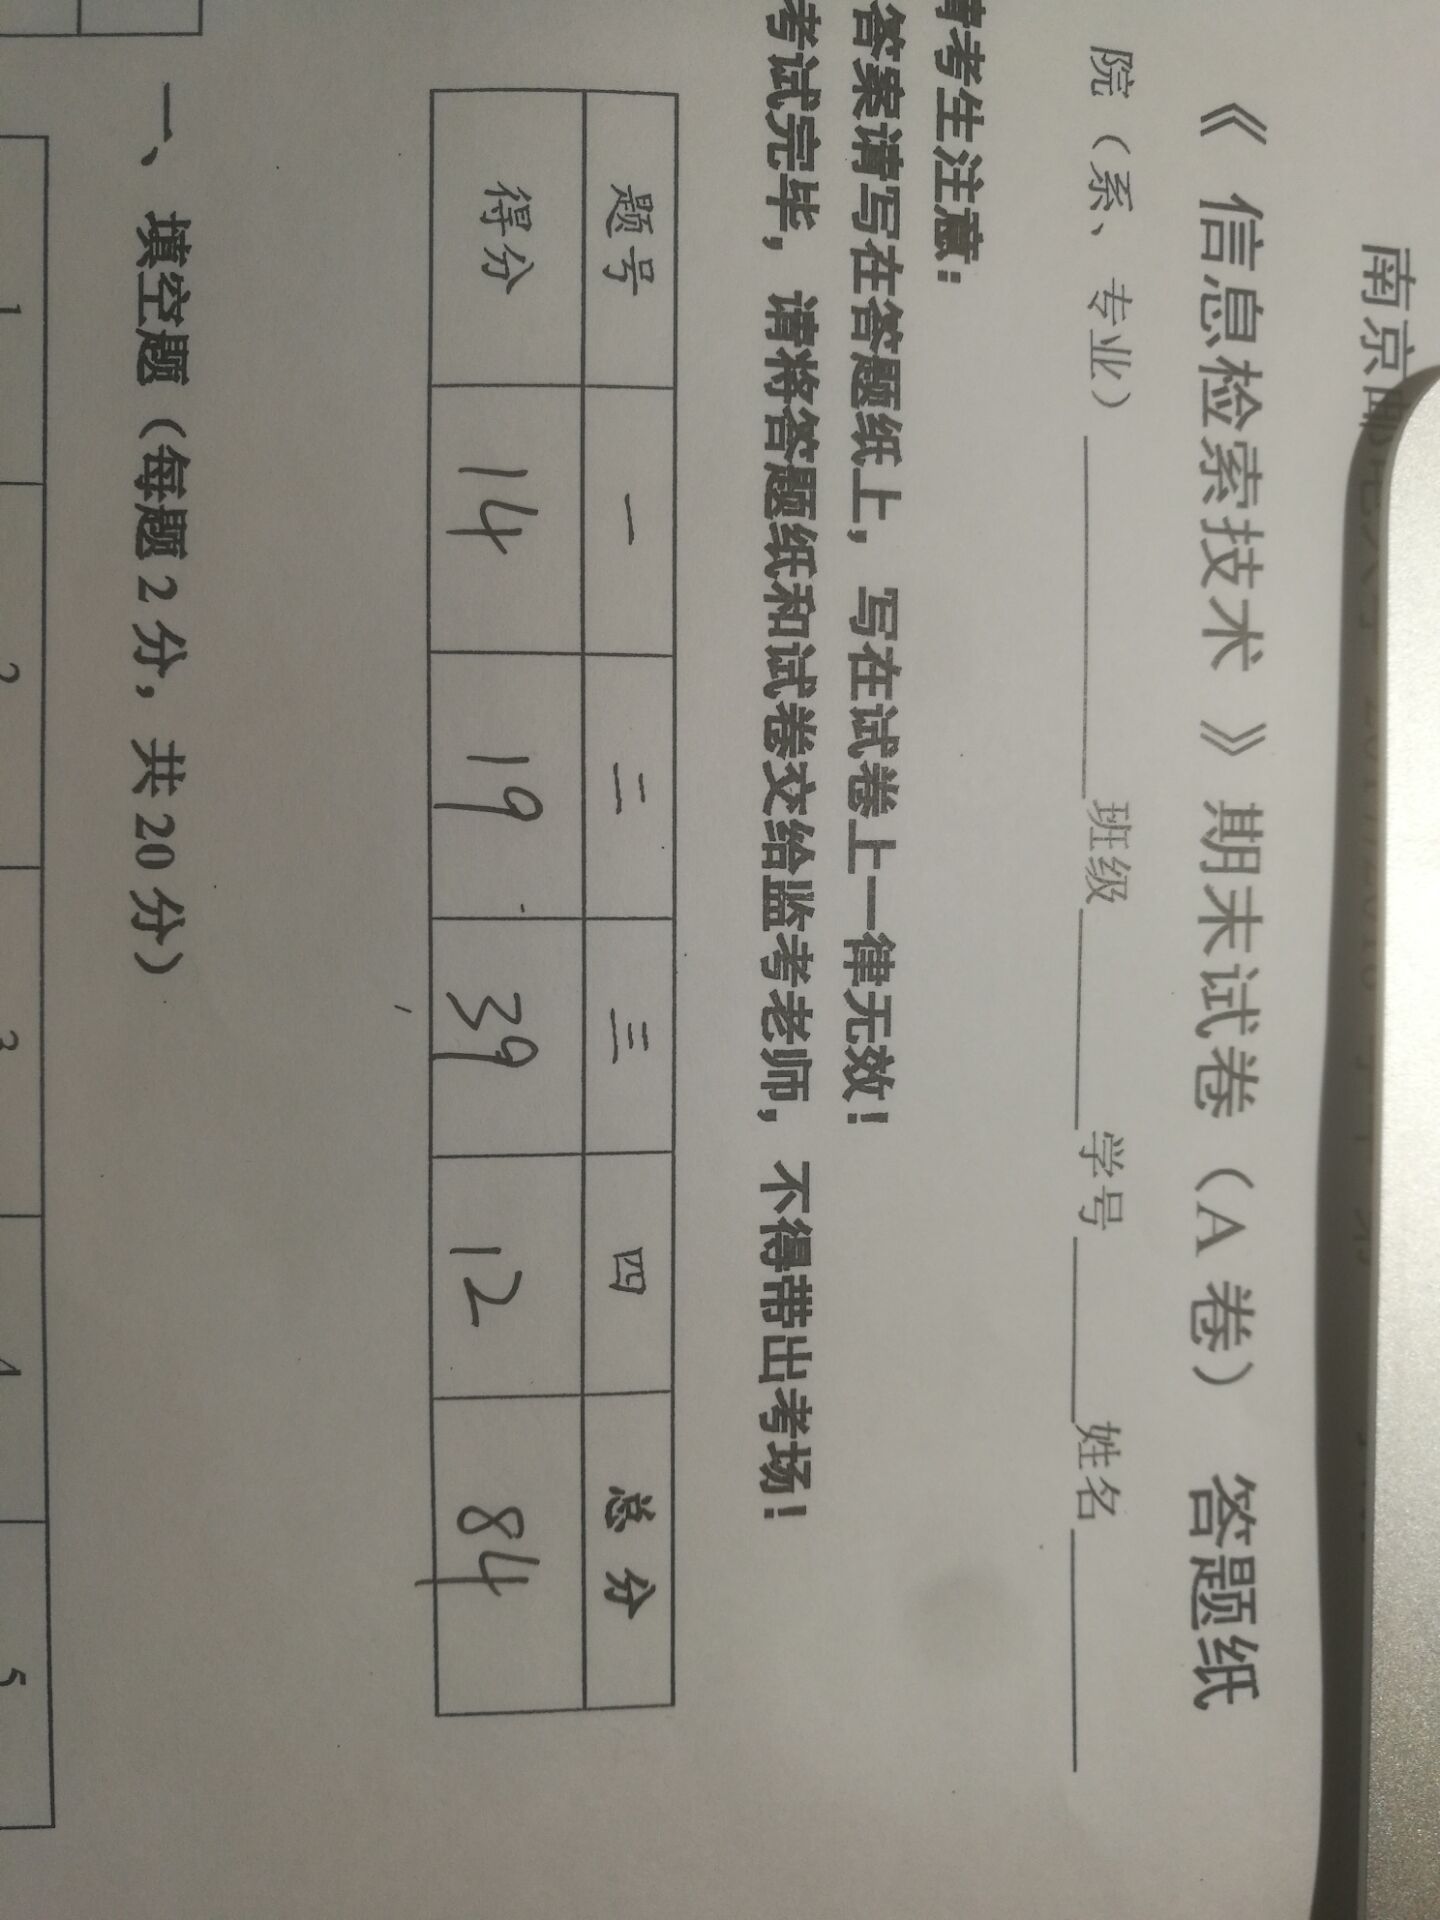 南京邮
《 信息检索技术 》期末试卷（A 卷） 答题纸
院（系、专业）____班级____学号____姓名____
请考生注意：
答案请写在答题纸上，写在试卷上一律无效！
考试完毕，请将答题纸和试卷交给监考老师，不得带出考场！
题号 一 二 三 四 总 分
得分 14 19 39 12 84
一、填空题（每题 2 分，共 20 分）
1 2 3 4 5